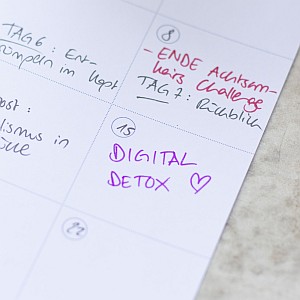 TAG 6 : Ent-
rümpeln im Kopf
8
- ENDE Achtsam-
keits Challenge
TAG 7 : Rückblick
ost :
lismus in
15
DIGITAL
DETOX ♡
22